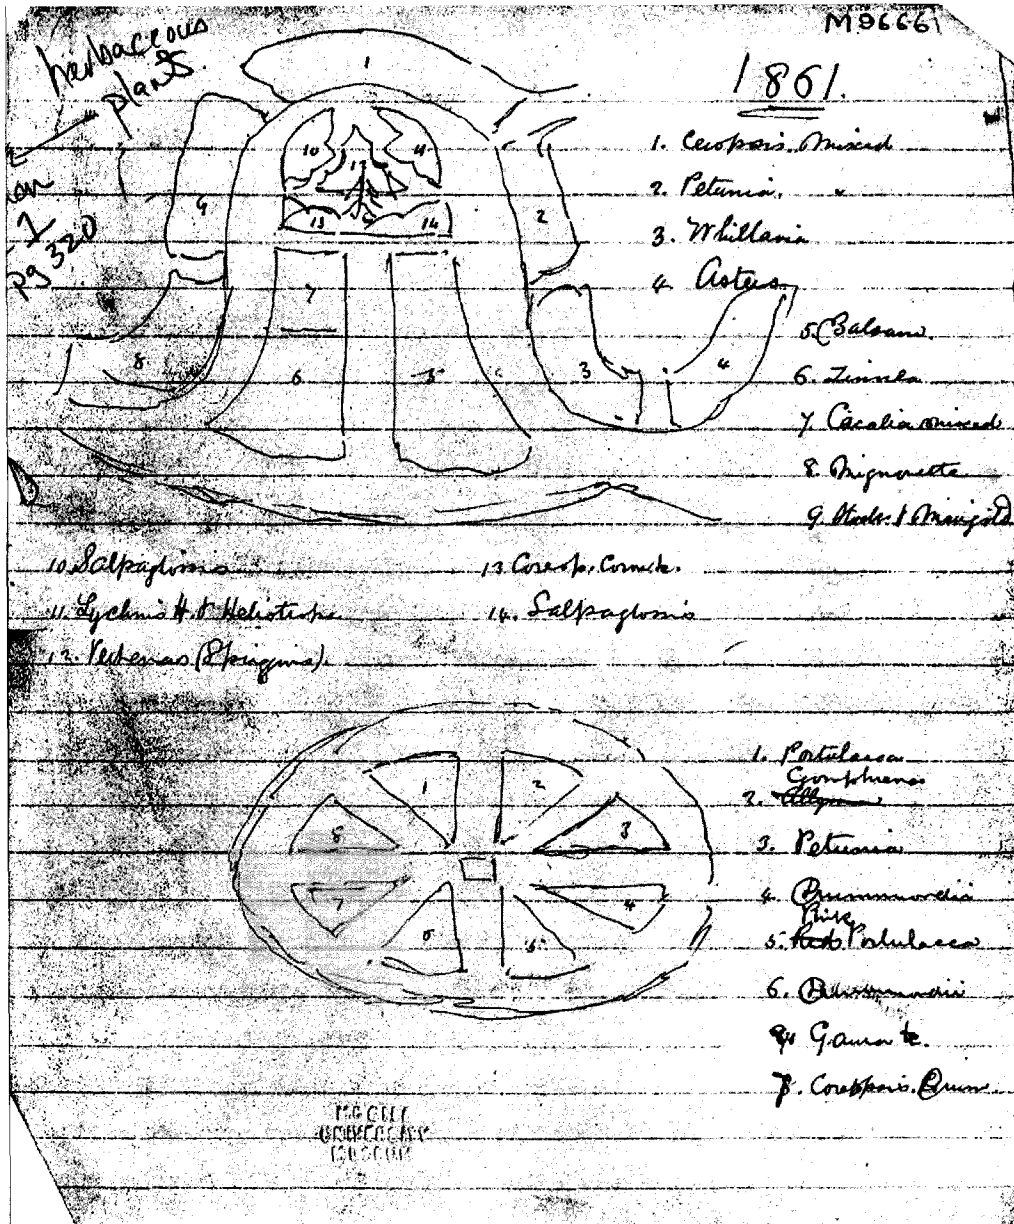 M9666
herbaceous
plants.
on
1
pg 320
1861.
1. Ceropsis. Mixed
2. Petunia, "
3. Whitlavia
4. Asters
5. Balsam.
6. Zinnea
7. Cacalia mixed
8. Mignonette
9. Stocks & Marigold
10. Salpaglossis
11. Lychnis H. & Heliotrope
12. Verbenas (Spriggins).
13 Coreop. Cornet.
14. Salpaglossis
1
10
11
12
13
14
9
2
7
8
6
5
3
4
1. Portulacca
Gomphrenas
2.
3. Petunia
4. Drummondia
Pink
5. Red Portulacca
6. Drummondii
Gaura &c.
Coreopsis. Drum.
1
2
8
3
7
4
6
5
McGILL
UNIVERSITY
MUSEUM